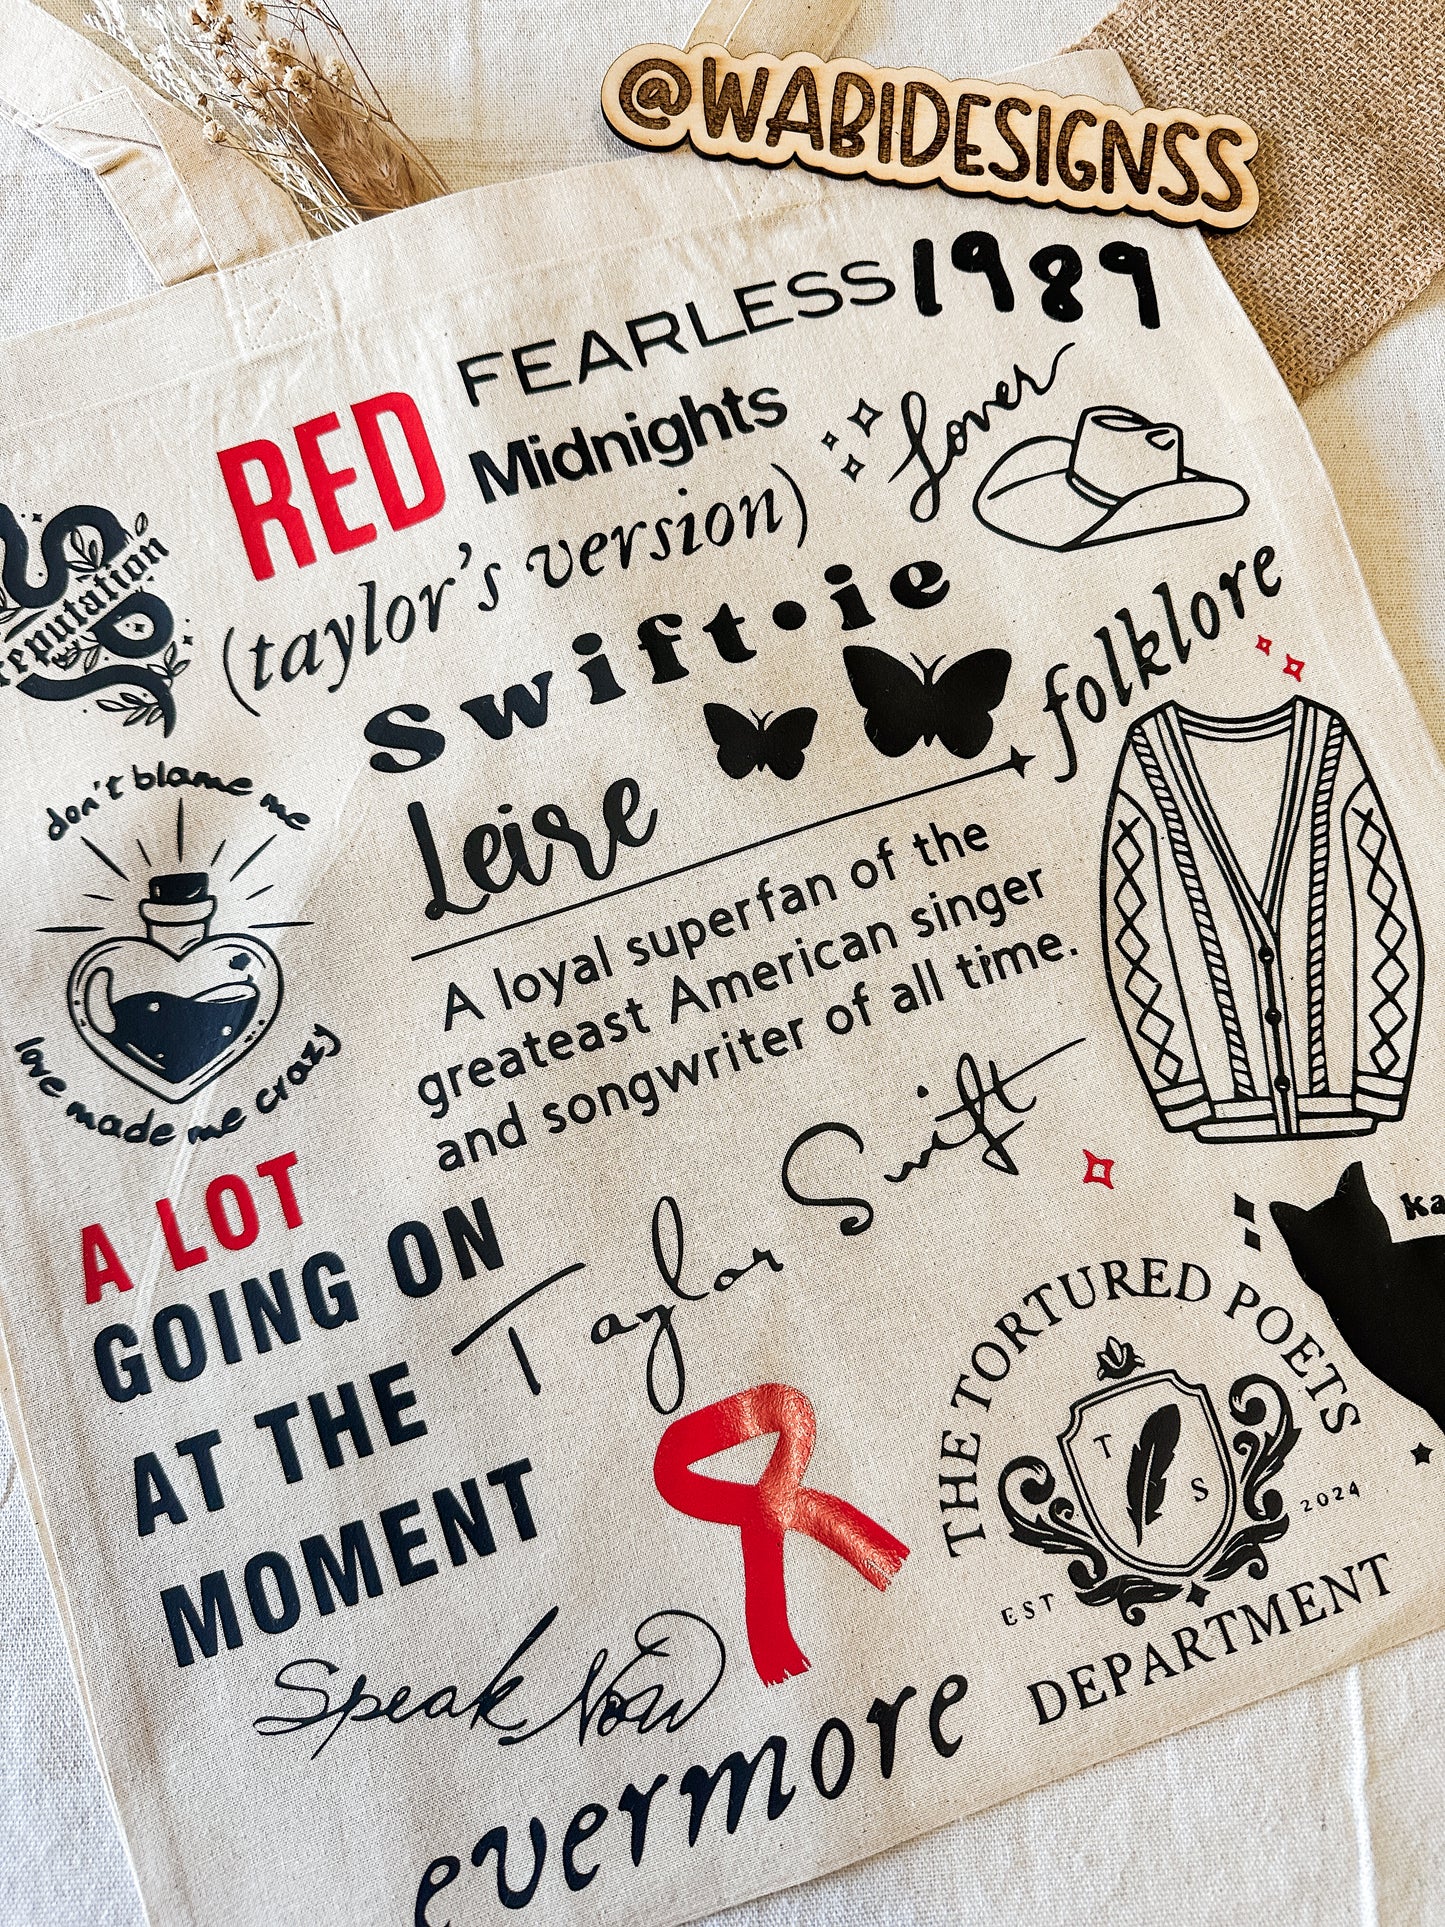 @WABIDESIGNSS
FEARLESS
1989
RED
Midnights
Lover
(taylor's version)
reputation
swift•ie
folklore
Leire
don't blame me
love made me crazy
A loyal superfan of the
greateast American singer
and songwriter of all time.
Taylor Swift
A LOT
GOING ON
AT THE
MOMENT
THE TORTURED POETS
T
S
EST
2024
DEPARTMENT
Speak Now
evermore